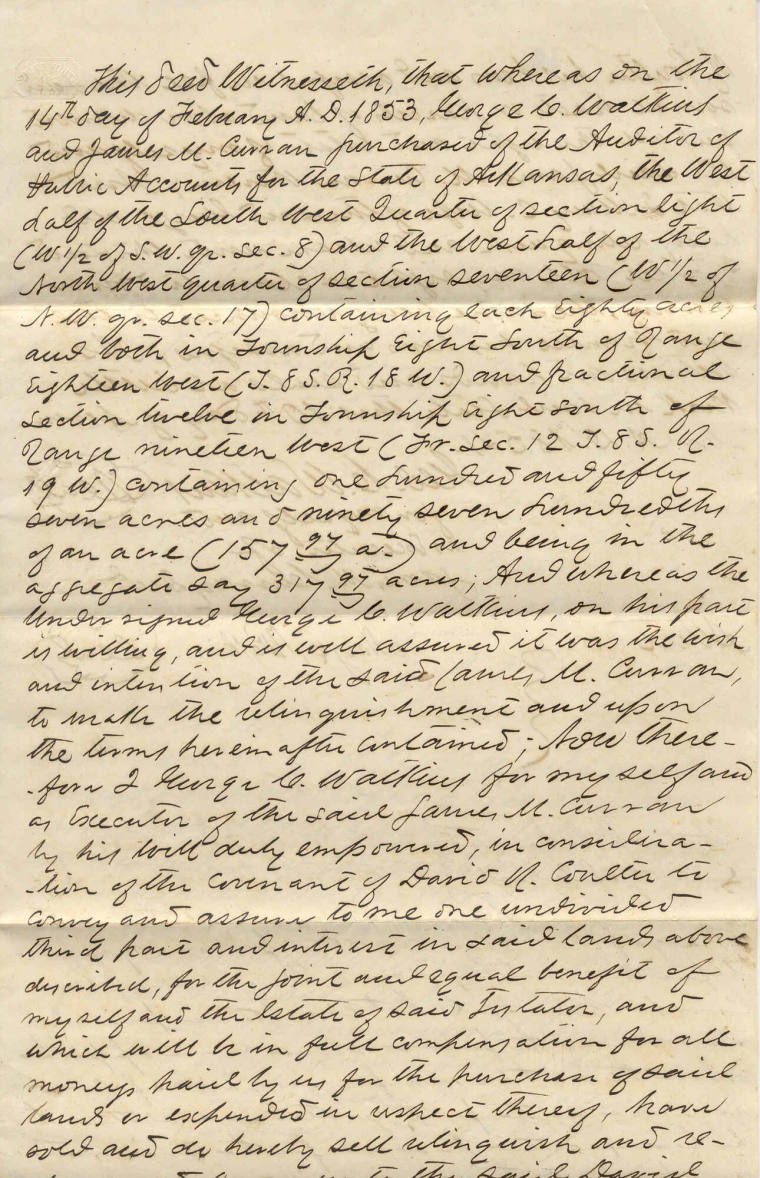 This Deed Witnesseth, that whereas on the
14th day of February A. D. 1853, George C. Watkins
and James M. Curran purchased of the Auditor of
Public Accounts for the State of Arkansas, the West
half of the South West Quarter of section Eight
(W 1/2 of S. W. qr. sec. 8) and the West half of the
North West quarter of section seventeen (W 1/2 of
N. W. qr. sec. 17) containing each Eighty acres
and both in Township Eight South of Range
Eighteen West (T. 8 S. R. 18 W.) and fractional
section twelve in Township Eight South of
Range nineteen West (Fr. Sec. 12 T. 8 S. R.
19 W.) containing one hundred and fifty
seven acres and ninety seven hundredths
of an acre (157 97 a.) and being in the
aggregate say 317 97 acres; And whereas the
undersigned George C. Watkins, on his part
is willing, and is well assured it was the wish
and intention of the said James M. Curran,
to make the relinquishment and upon
the terms hereinafter contained; Now there-
-fore I George C. Watkins for myself and
as Executor of the said James M. Curran
by his will duly empowered, in considera-
-tion of the covenant of David R. Coulter to
convey and assure to me one undivided
third part and interest in said lands above
described, for the joint and equal benefit of
myself and the Estate of said Testator, and
which will be in full compensation for all
moneys paid by us for the purchase of said
lands or expended in respect thereof, have
sold and do hereby sell relinquish and re-
unto the said David